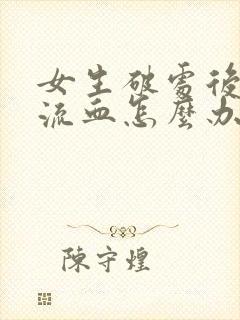 女生破處後
流血怎麼办
陳守煌